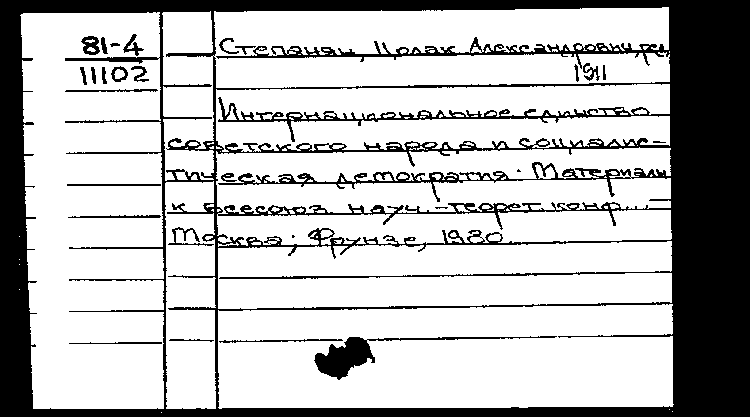 81-4
11102
Степанян, Цолак Александрович, ред.
1911
Интернациональное единство
советского народа и социалис-
тическая демократия. Материалы
к всесоюз. науч.-теорет. конф... —
Москва; Фрунзе, 1980.